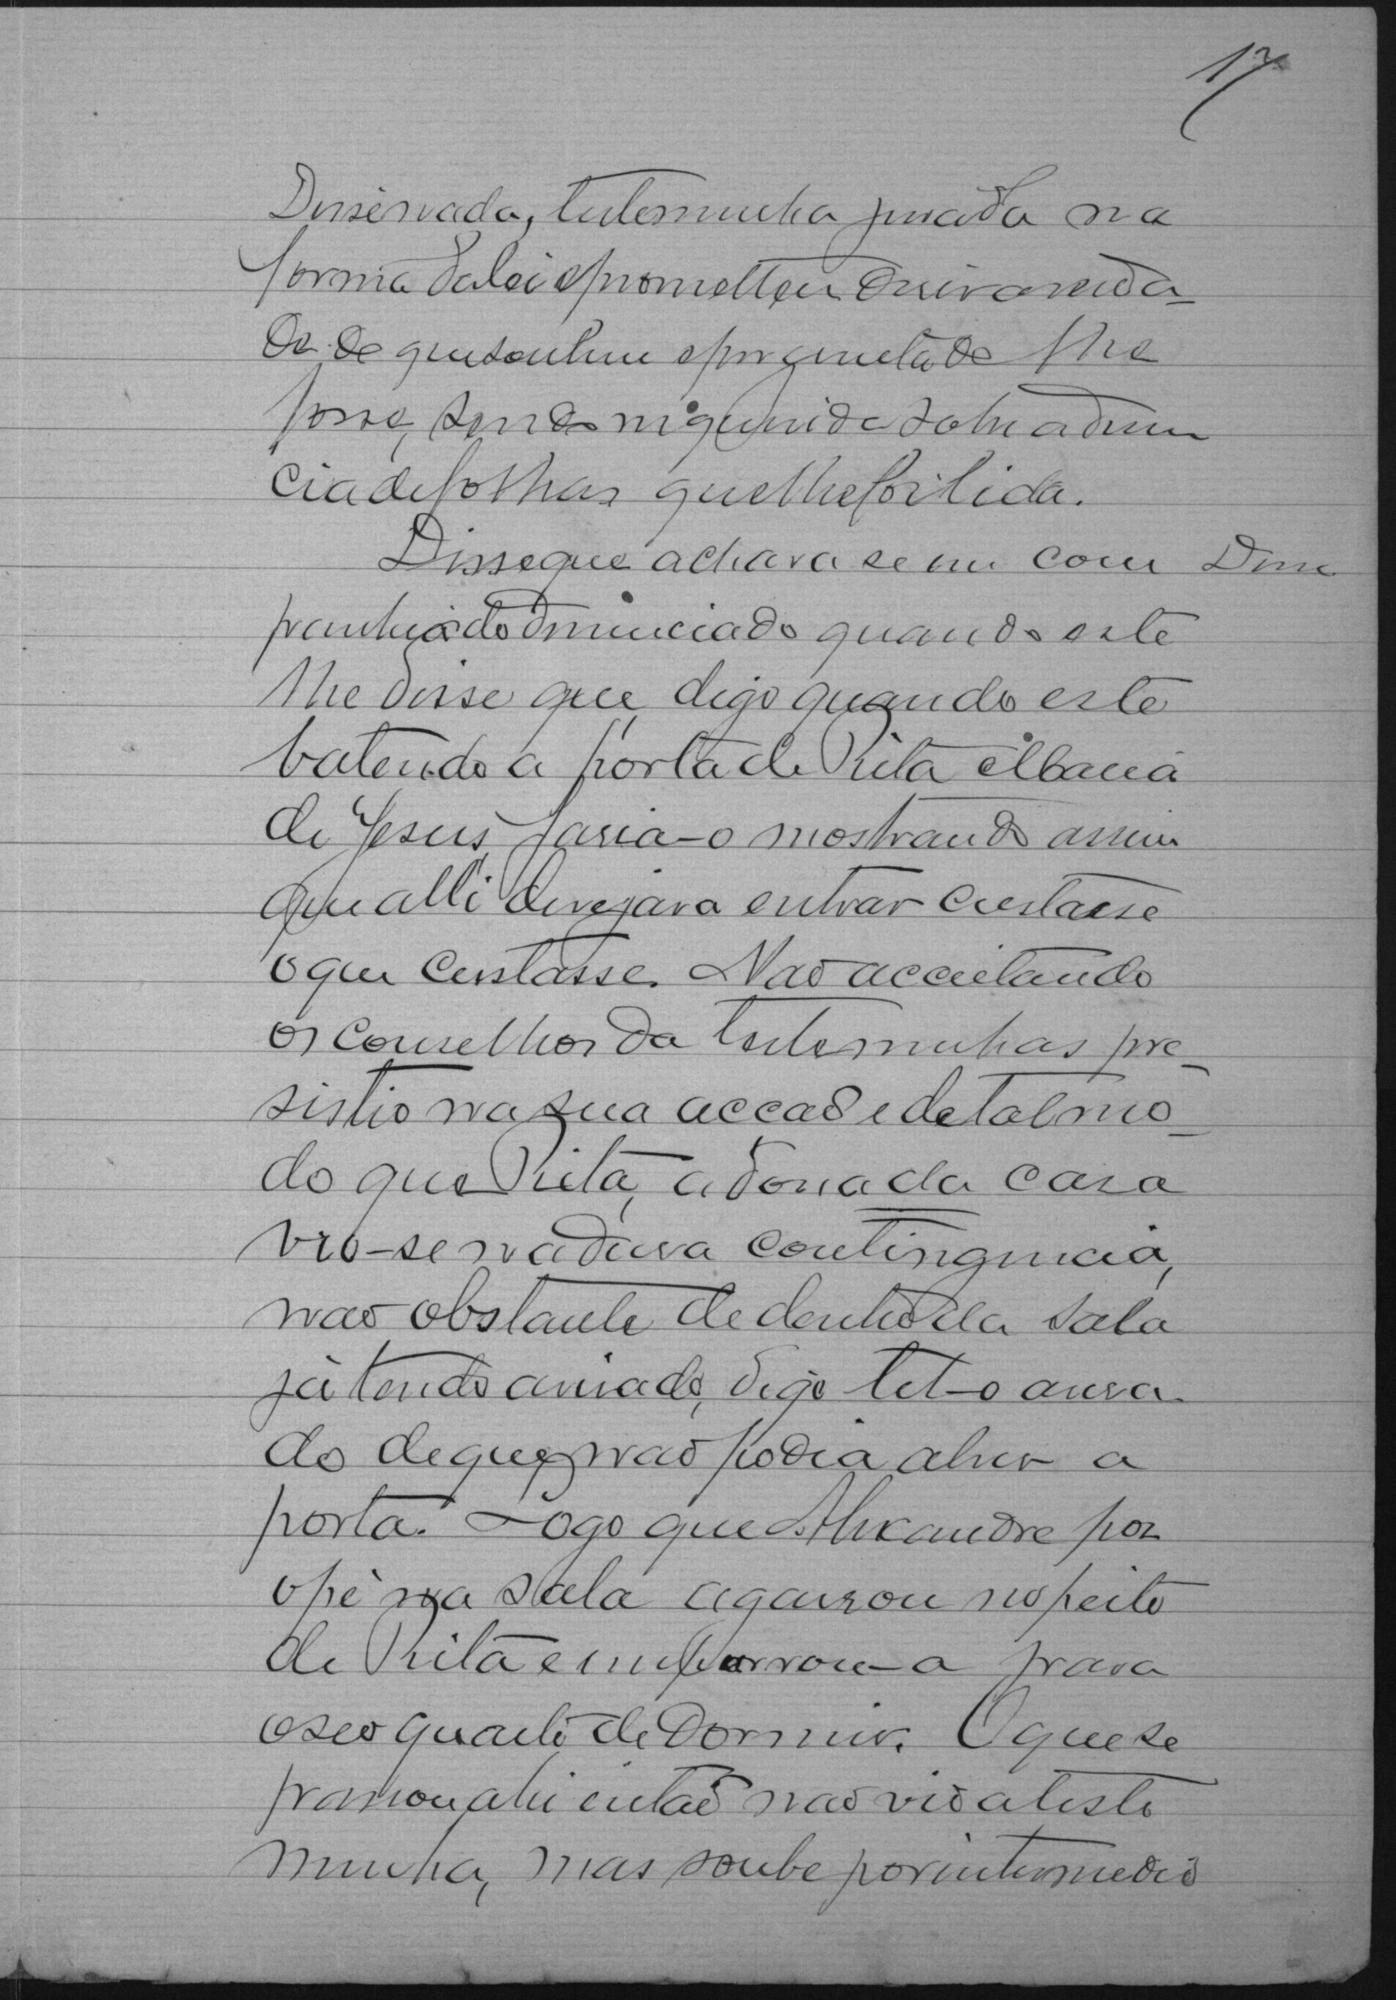 17
Disse nada, testemunha jurada na
forma da lei e prometteu dizer a verda-
de do que soubesse e perguntado lhe
fosse, sendo inquirida sobre a denun
cia de folhas que lhe foi lida.
Disse que achava se em com Disse
panhia do denunciado quando este
lhe disse que, digo quando este
batendo a porta de Rita Maria
de Jesus, fazia-o mostrando assim
que alli desejava entrar custasse
o que custasse. Não acceitando
os conselhos da testemunhas pre-
sistio na sua accão e de tal mo-
do que Rita, a dona da casa
vio-se na dura contingencia,
não obstante de dentro da sala
já tendo avisado, digo tel-o avisa-
do de que não podia abrir a
porta. Logo que Alexandre poz
o pé na sala agarrou no peito
de Rita e empurrou-a para
o seo quarto de dormir. O que se
passou ahi então não vio a teste
munha, mas soube por intermedio